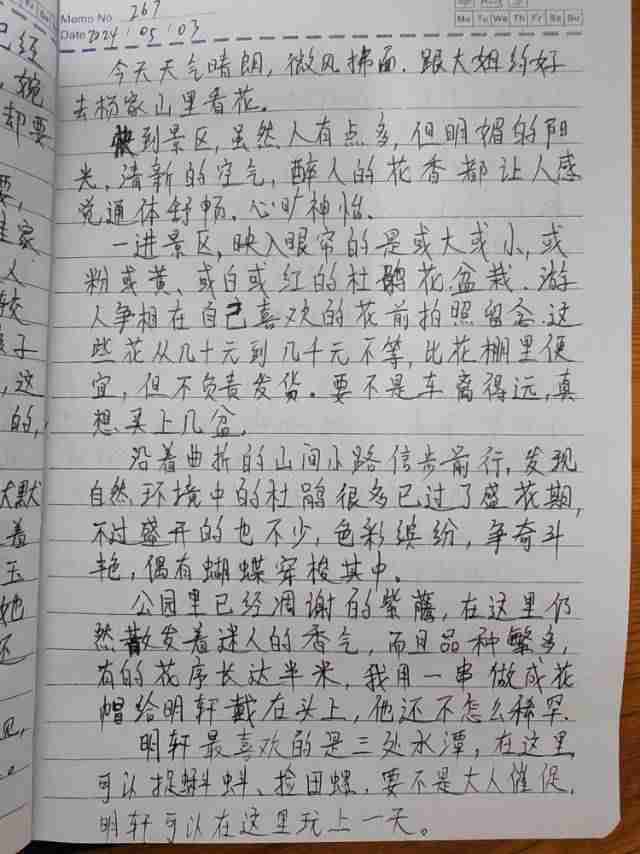 已经
, 婉
却要
要,
佳家
人
较
孩子
, 这
的,
大默
着
玉
她
还
见,
Memo No. 267
Mo Tu We Th Fr Sa Su
Date 2024 / 05 / 03
今天天气晴朗, 微风拂面. 跟大姐约好
去杨家山里看花。
快到景区, 虽然人有点多, 但明媚的阳
光, 清新的空气, 醉人的花香都让人感
觉通体舒畅、心旷神怡.
一进景区, 映入眼帘的是或大或小, 或
粉或黄、或白或红的杜鹃花盆栽. 游
人争相在自己喜欢的花前拍照留念. 这
些花从几十元到几千元不等, 比花棚里便
宜, 但不负责发货. 要不是车离得远, 真
想买上几盆.
沿着曲折的山间小路信步前行, 发现
自然环境中的杜鹃很多已过了盛花期,
不过盛开的也不少, 色彩缤纷, 争奇斗
艳, 偶有蝴蝶穿梭其中。
公园里已经凋谢的紫藤, 在这里仍
然散发着迷人的香气, 而且品种繁多,
有的花序长达半米, 我用一串做成花
帽给明轩戴在头上, 他还不怎么稀罕.
明轩最喜欢的是三处水潭, 在这里
可以捉蝌蚪、捡田螺. 要不是大人催促,
明轩可以在这里玩上一天。